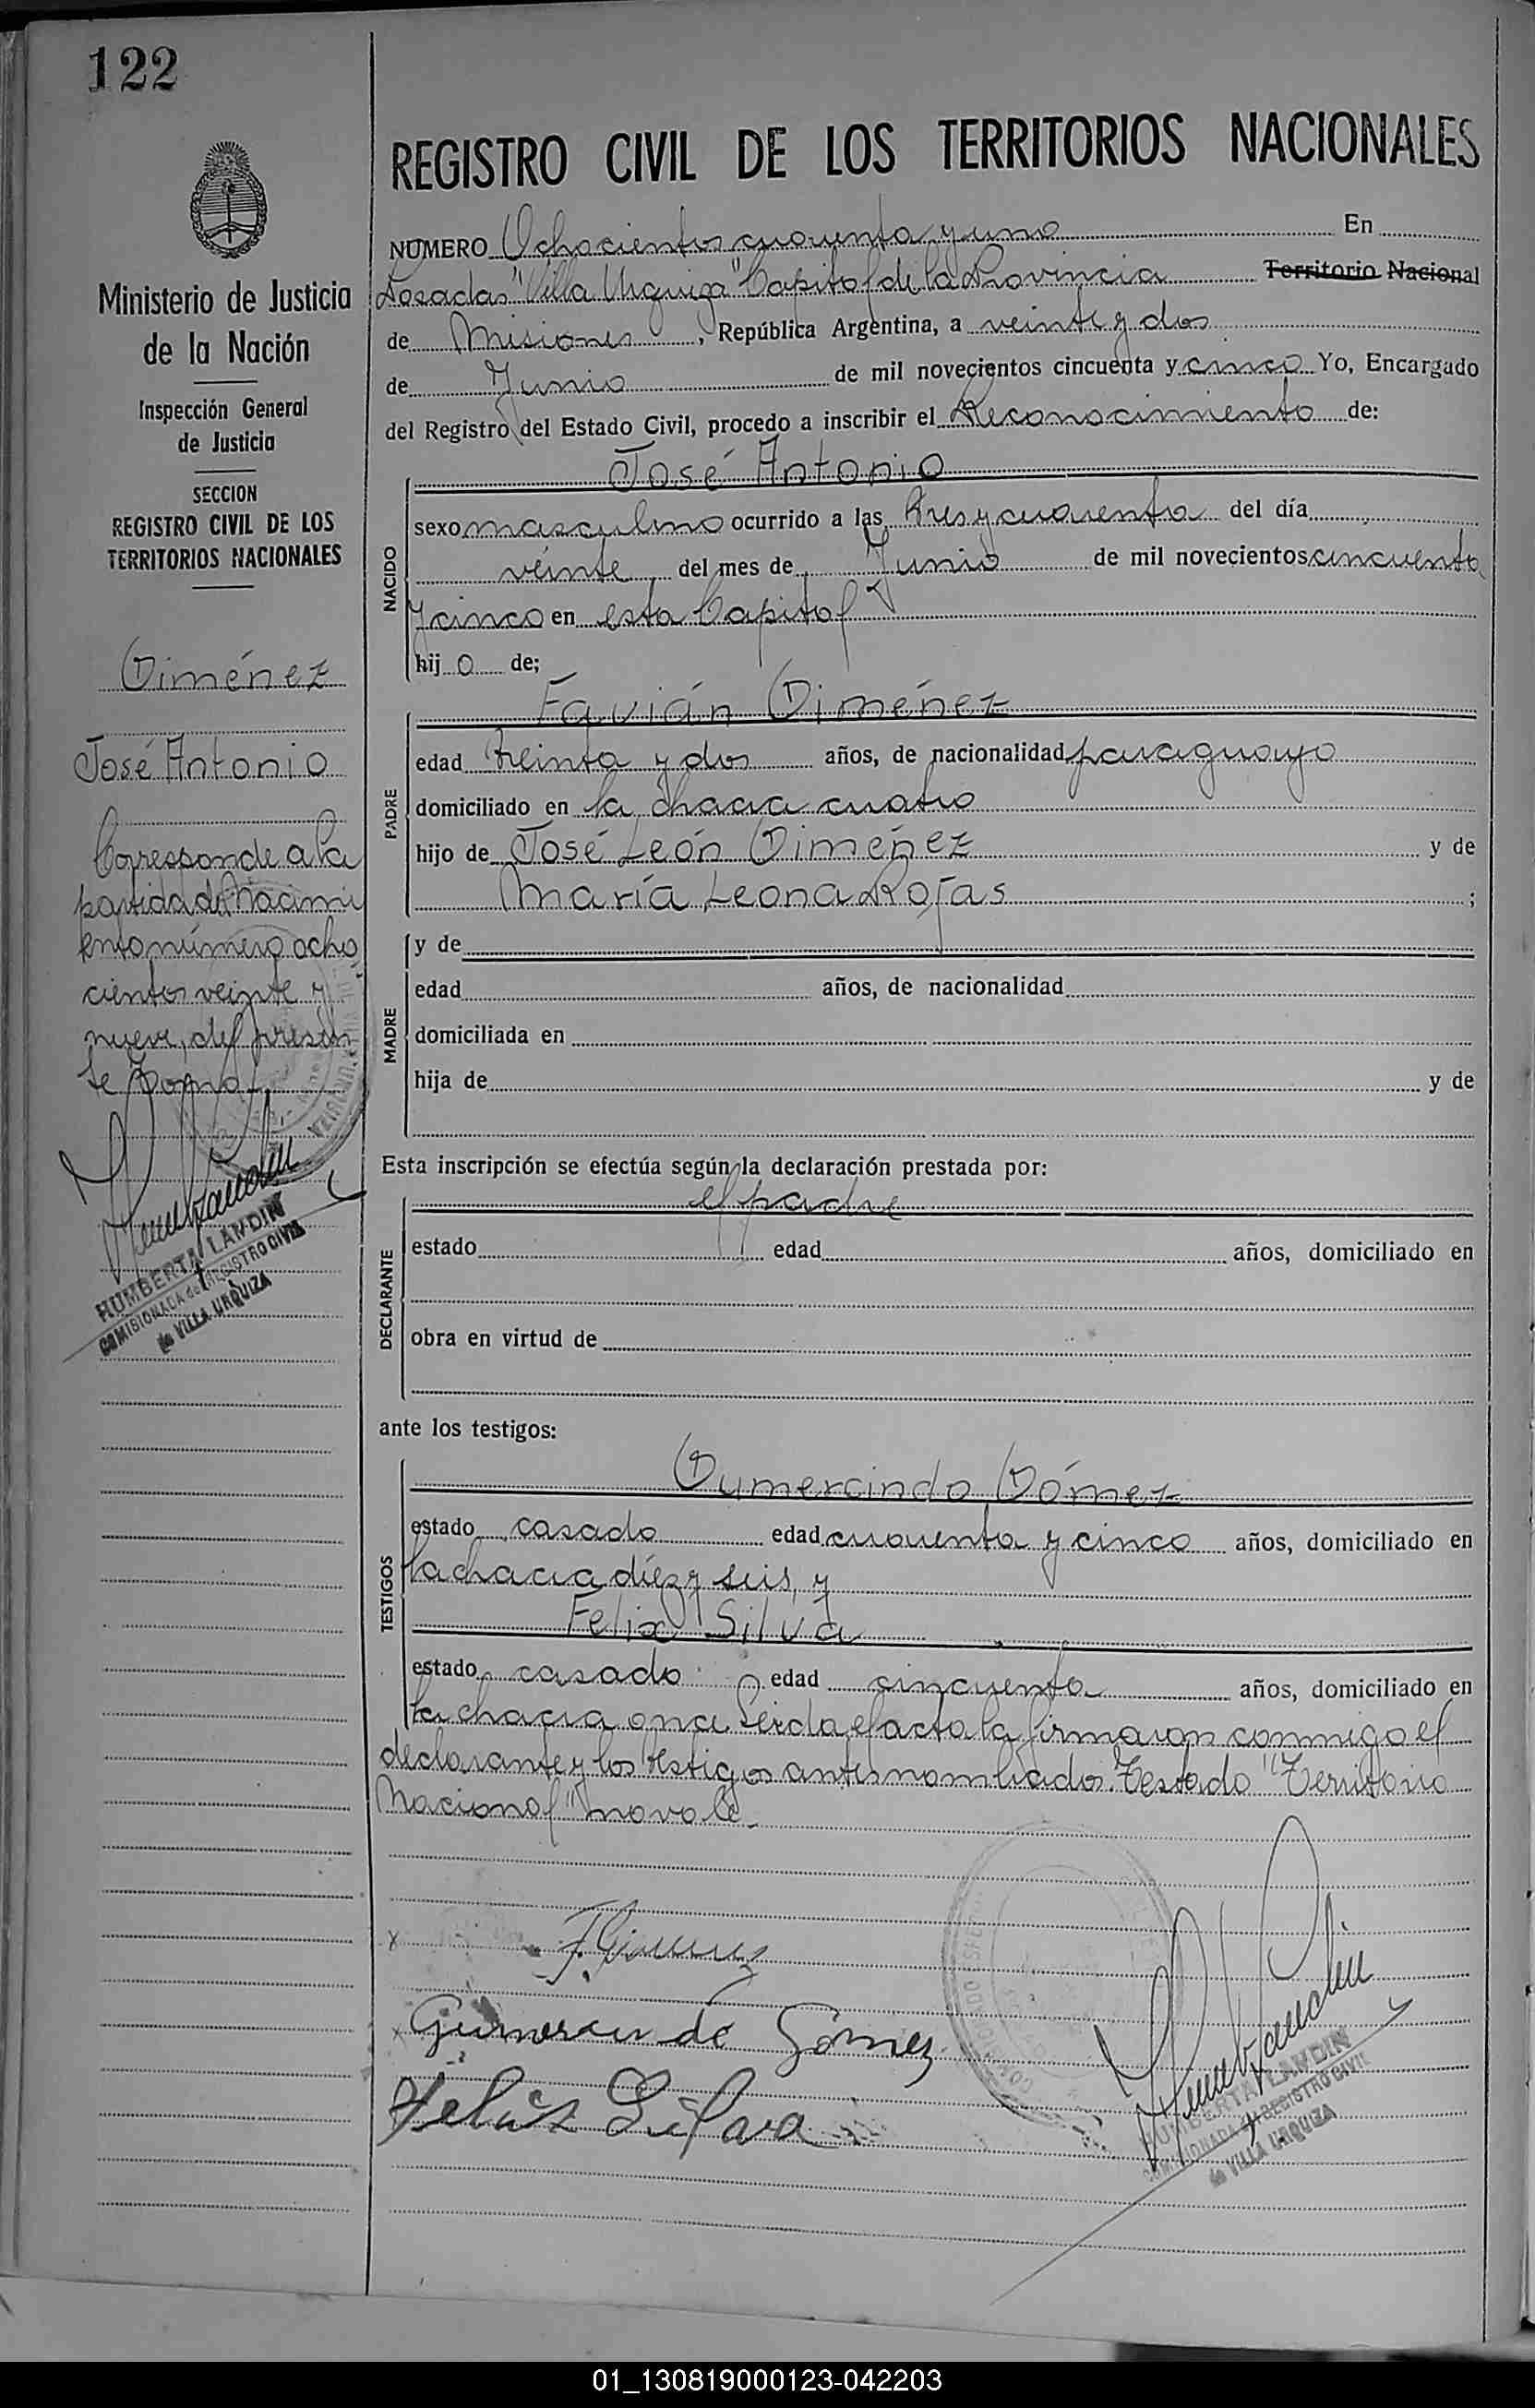 122
REGISTRO CIVIL DE LOS TERRITORIOS NACIONALES
NUMERO Ochocientos cuarenta y uno En
Posadas "Villa Urquiza" Capital de la Provincia Territorio Nacional
de Misiones, República Argentina, a veinte y dos
de Junio de mil novecientos cincuenta y cinco Yo, Encargado
del Registro del Estado Civil, procedo a inscribir el Reconocimiento de:
José Antonio
NACIDO
sexo masculino ocurrido a las tres y cuarenta del día
veinte del mes de Junio de mil novecientos cincuenta
y cinco en esta Capital
hijo de;
Favián Giménez
PADRE
edad treinta y dos años, de nacionalidad paraguayo
domiciliado en la chacra cuatro
hijo de José León Giménez y de
María Leona Rojas ;
MADRE
y de
edad años, de nacionalidad
domiciliada en
hija de y de
Esta inscripción se efectúa según la declaración prestada por:
el padre
DECLARANTE
estado edad años, domiciliado en
obra en virtud de
ante los testigos:
Gumercindo Gómez
TESTIGOS
estado casado edad cuarenta y cinco años, domiciliado en
la chacra diez y seis, y
Felix Silva
estado casado edad cincuenta años, domiciliado en
la chacra once. Leida el acta la firmaron conmigo el
declarante y los testigos antes nombrados. Testado "Territorio
Nacional" no vale.
F. Gimenez
Gumercindo Gómez
Felix Silva
HUMBERTA LANDIN
COMISIONADA del REGISTRO CIVIL
de VILLA URQUIZA
Ministerio de Justicia
de la Nación
Inspección General
de Justicia
SECCION
REGISTRO CIVIL DE LOS
TERRITORIOS NACIONALES
Giménez
José Antonio
Corresponde a la
partida de Nacimi
ento número ocho
cientos veinte y
nueve, del presen
te Tomo
HUMBERTA LANDIN
COMISIONADA del REGISTRO CIVIL
de VILLA URQUIZA
01_130819000123-042203